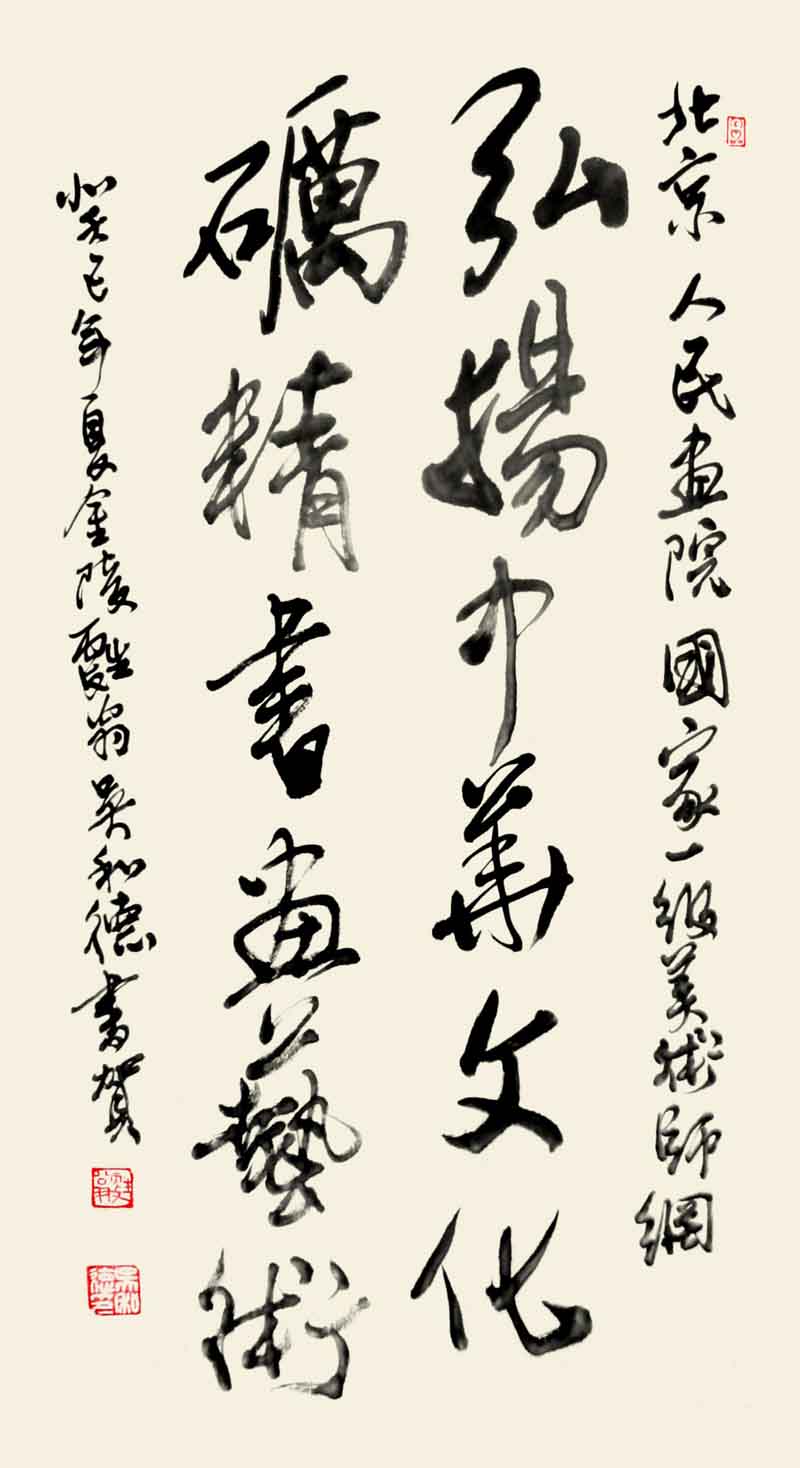 北京人民画院國家一级美術師網
弘揚中華文化
礪精書畫藝術
癸巳年夏金陵醜翁吴和德書賀